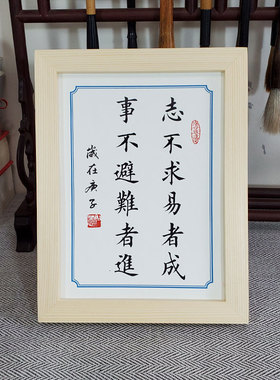 志不求易者成
事不避難者進
歲在庚子